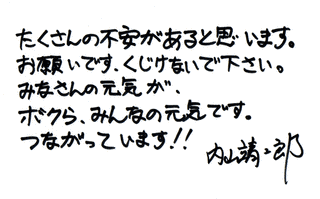 たくさんの不安があると思います。
お願いです、くじけないで下さい。
みなさんの元気が、
ボクら、みんなの元気です。
つながっています!!
内山靖二郎